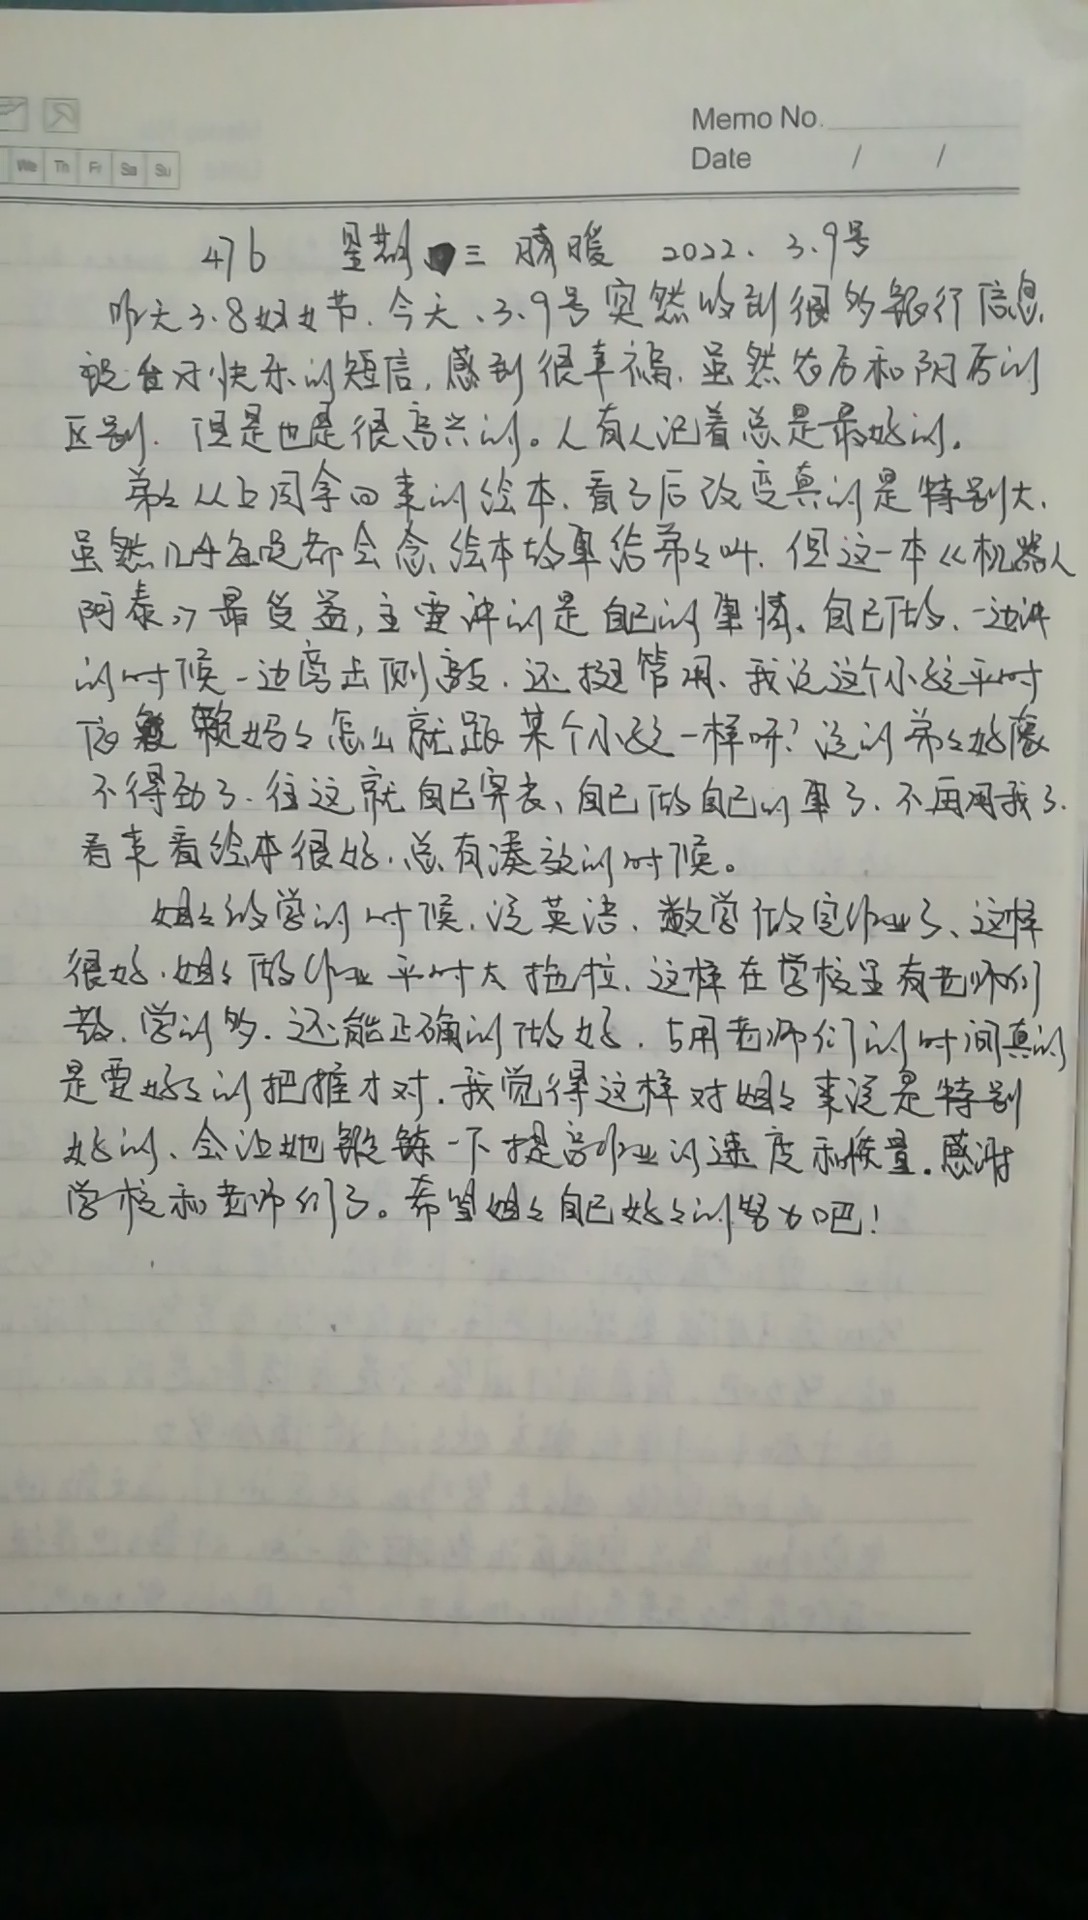 Memo No.
We Th Fr Sa Su
Date / /
476 星期三 晴暖 2022. 3.9号
昨天3.8妇女节.今天、3.9号突然收到很多银行信息.
快乐的短信,感到很幸福.虽然农历和阴历的
区别.但是也是很高兴的。人有人记着总是最好的.
弟弟从上周拿回来的绘本.看了后改变真的是特别大.
虽然几乎每晚都会念绘本故事给弟弟听.但这一本《机器人
阿泰》最受益,主要讲的是自己的事情.自己做、一边讲
的时候一边旁击侧敲.还挺管用、我说这个小孩平时
赖妈妈怎么就跟某个小孩一样呀?说的弟弟好像
不得劲了.往这就自己穿衣、自己做自己的事了.不再用我了.
看来看绘本很好.总有凑效的时候。
姐姐放学的时候.说英语.数学做完作业了、这样
很好.姐姐做作业平时太拖拉.这样在学校里有老师们
教.学的多.还能正确的做好.占用老师们的时间真的
是要好好的把握才对.我觉得这样对姐姐来说是特别
好的、会让她锻炼一下提高作业的速度和质量.感谢
学校和老师们了。希望姐姐自己好好的努力吧!